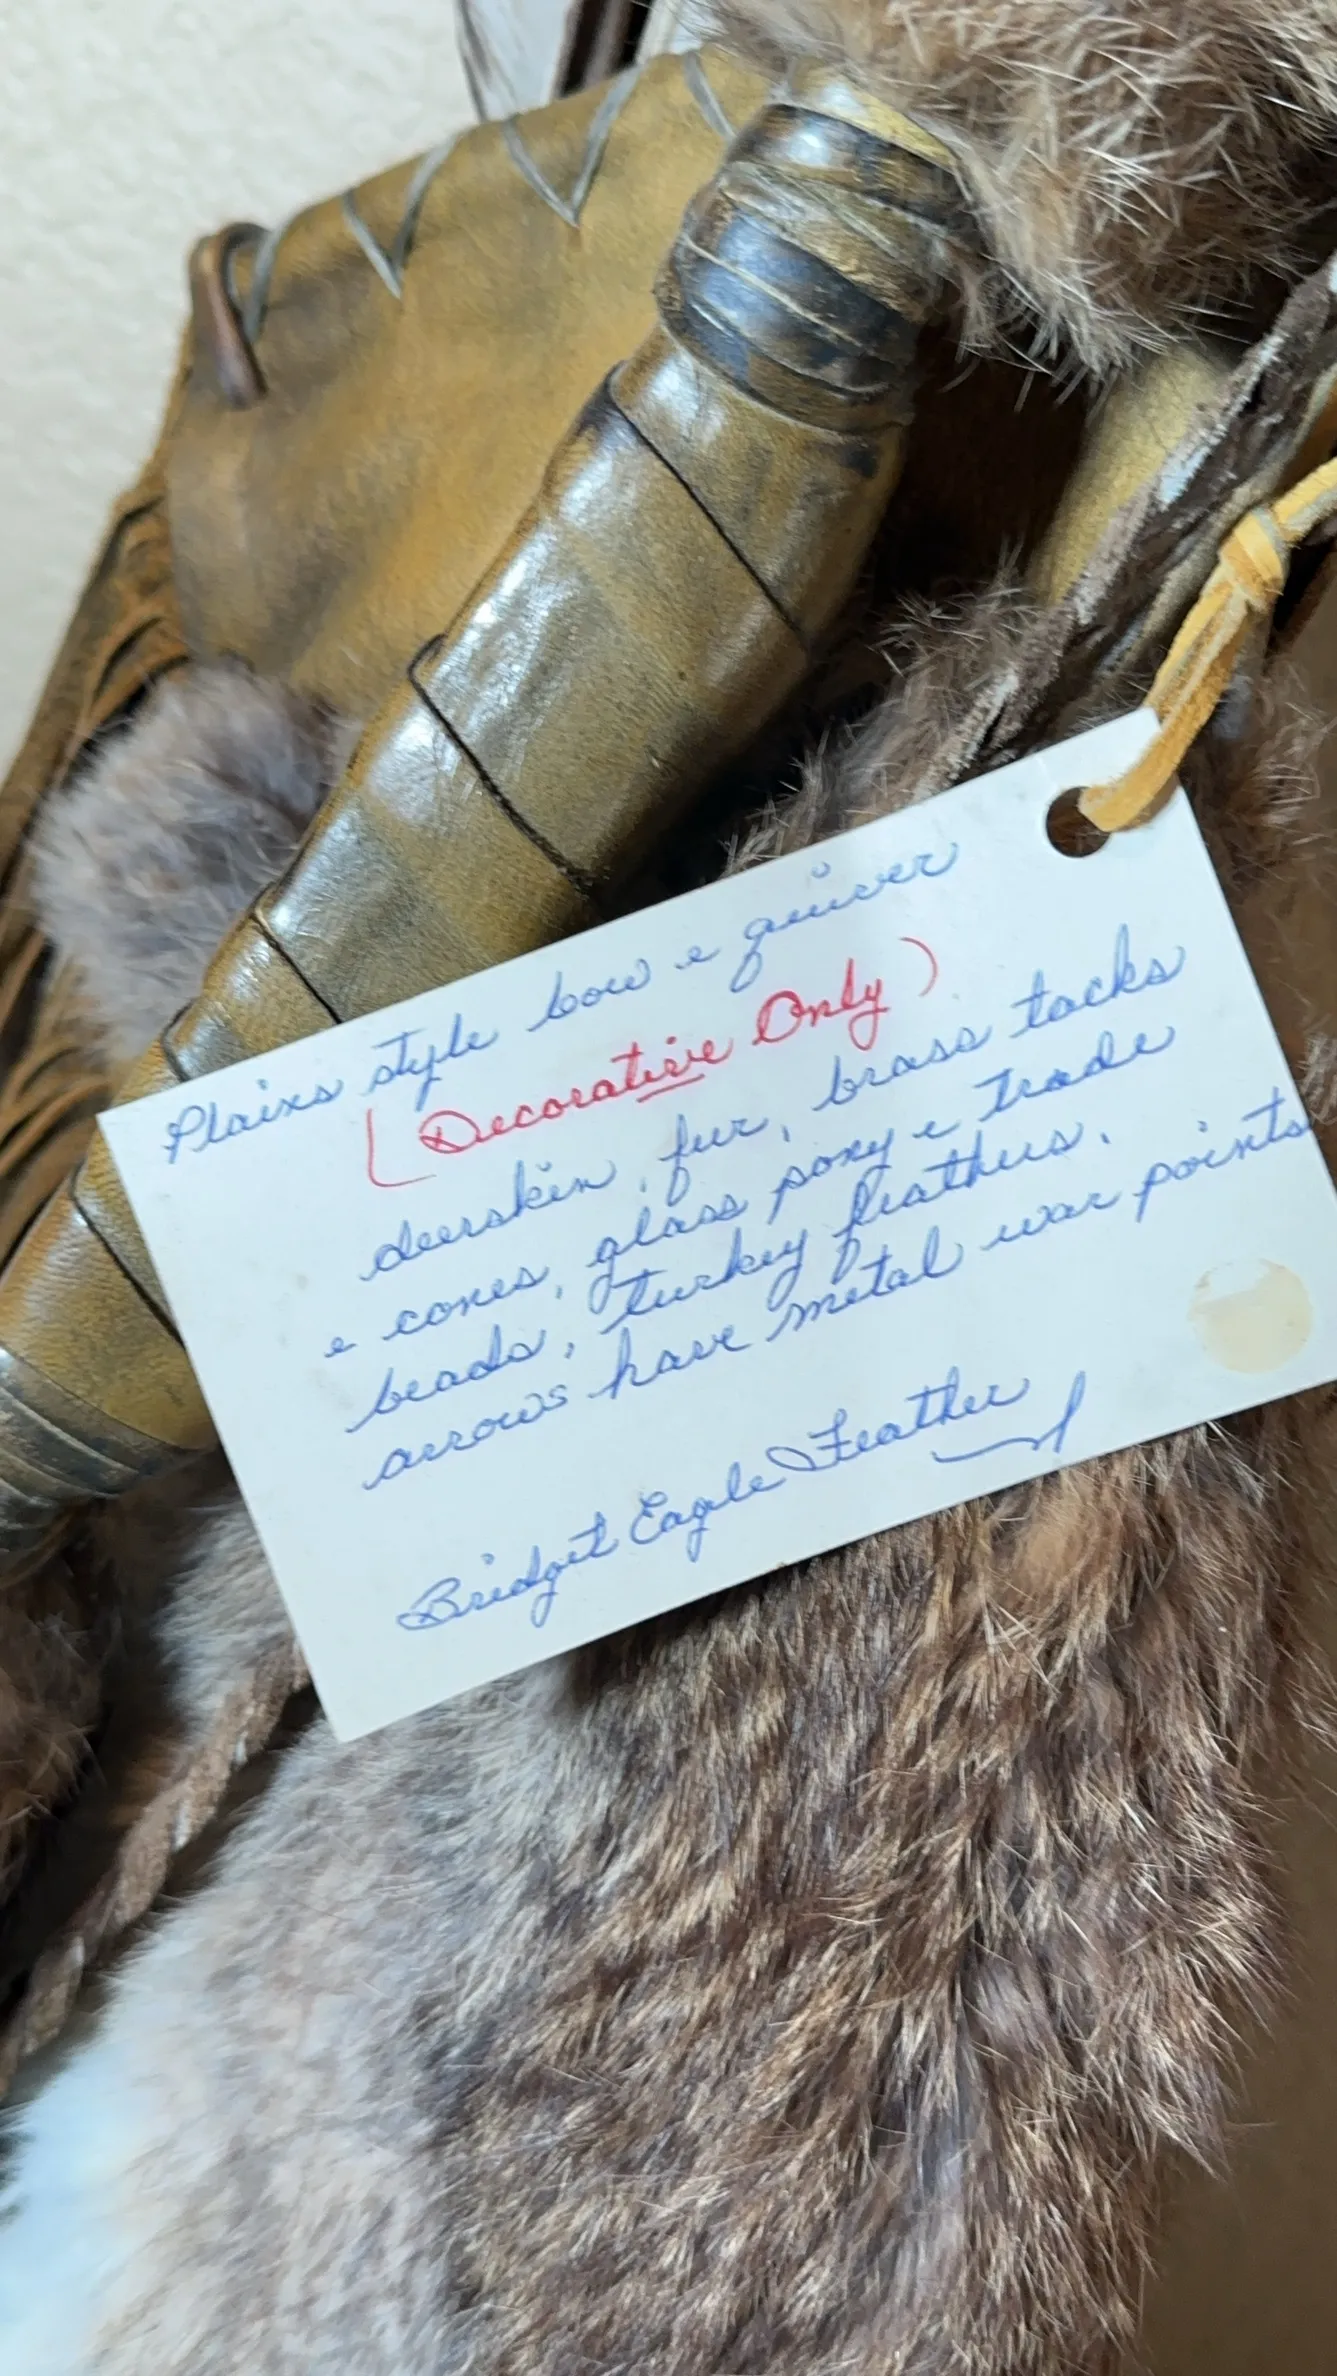 Plains style bow & quiver
(Decorative Only)
deerskin, fur, brass tacks
& cones, glass pony & trade
beads, turkey feathers.
arrows have metal war points
Bridget Eagle Feather